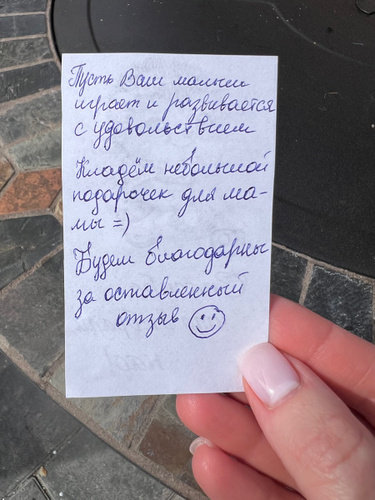 Пусть Ваш малыш
играет и развивается
с удовольствием
Кладём небольшой
подарочек для ма-
мы =)
Будем благодарны
за оставленный
отзыв